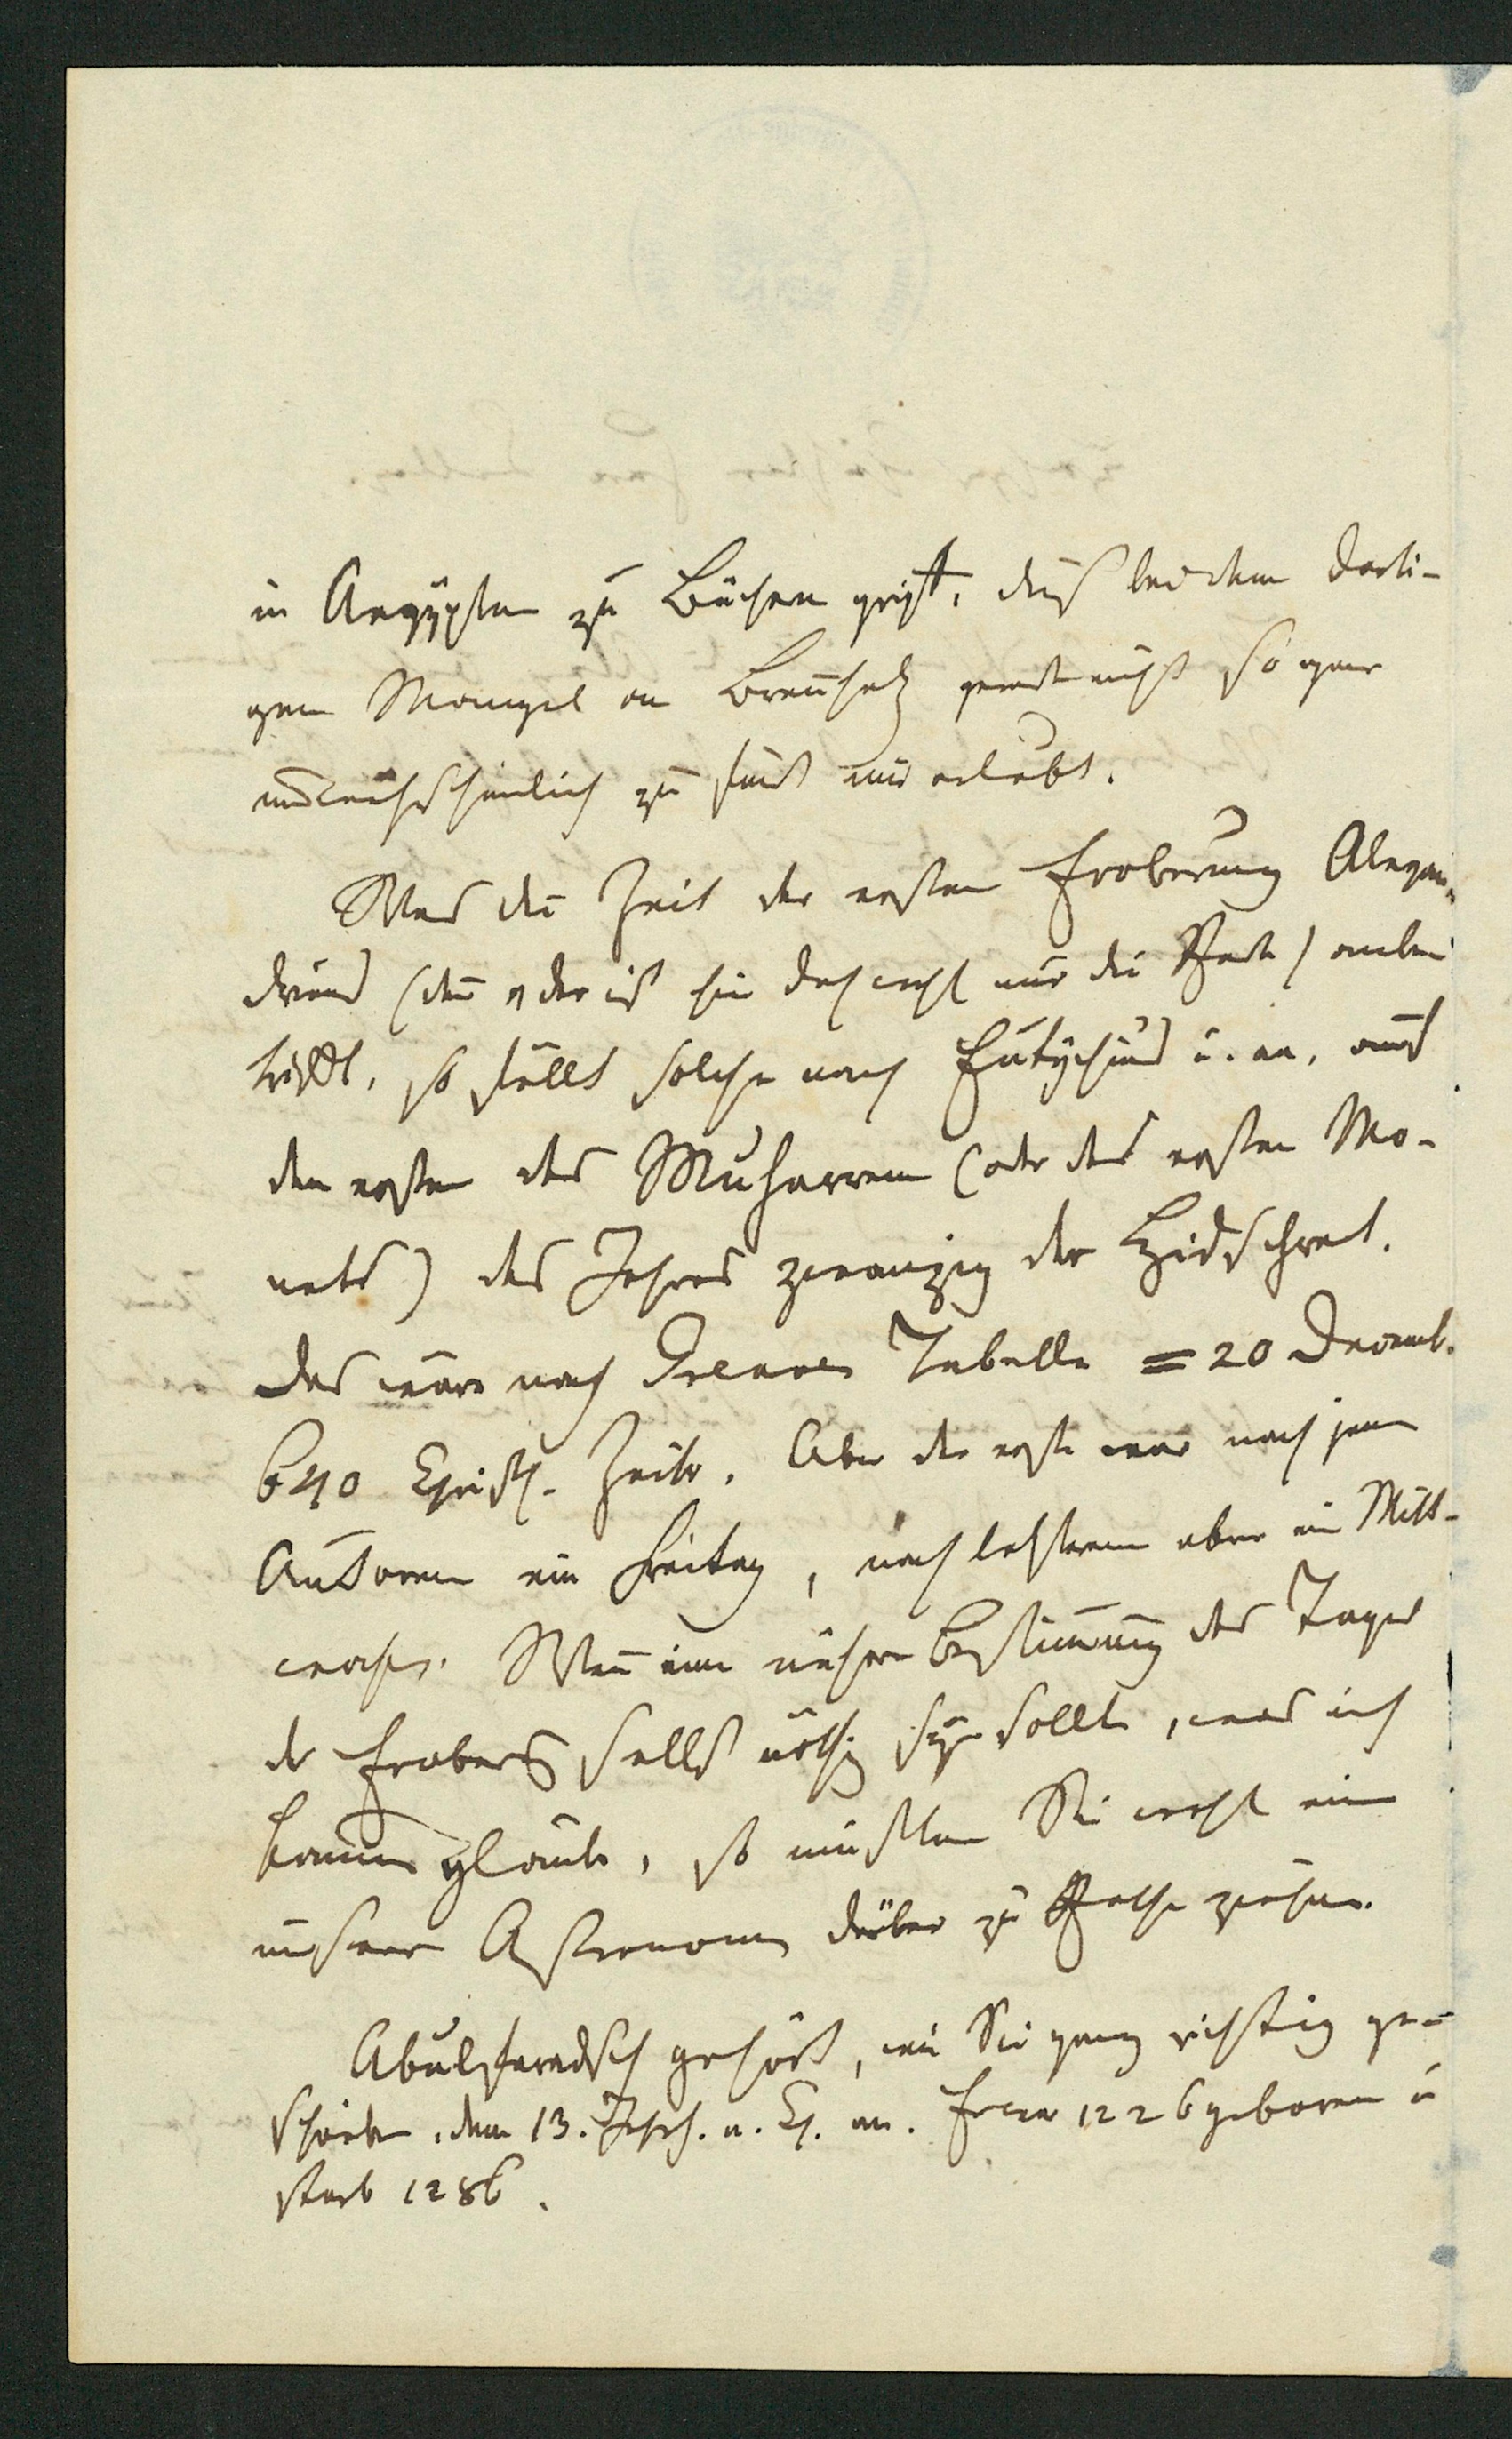 in Aegypten zu Büchern greift, dieß bei dem dorti-
gen Mangel an Breñholz gerade nicht so gar
unwahrscheinlich zu seyn mir erlaubt.
Was die Zeit der ersten Eroberung Alexan-
driens (deñ von der ist hier doch wohl nur die Rede) anbe-
trifft, so fällt solche nach Eutychius u. aa. auf
den ersten des Muharrem (oder des ersten Mo-
nats) des Jahres zwanzig der Hidschret.
Das wäre nach Greaves Tabelle = 20 Decemb.
640 Christl. Zeitr. Aber der erste war nach jenen
Autoren ein Freitag, nach letzterem aber ein Mitt-
woch. Weñ eine nähere Bestimung des Tages
der Eroberg selbst nöthig seyn sollte, was ich
kaum glaube, so müßten Sie wohl einen
unserer Astronomen darüber zu Rathe ziehen.
Abulfaradsch gehört, wie Sie ganz richtig ge-
schrieben, dem 13. Jahrh. n. Ch. an. Er war 1226 geboren u
starb 1286.